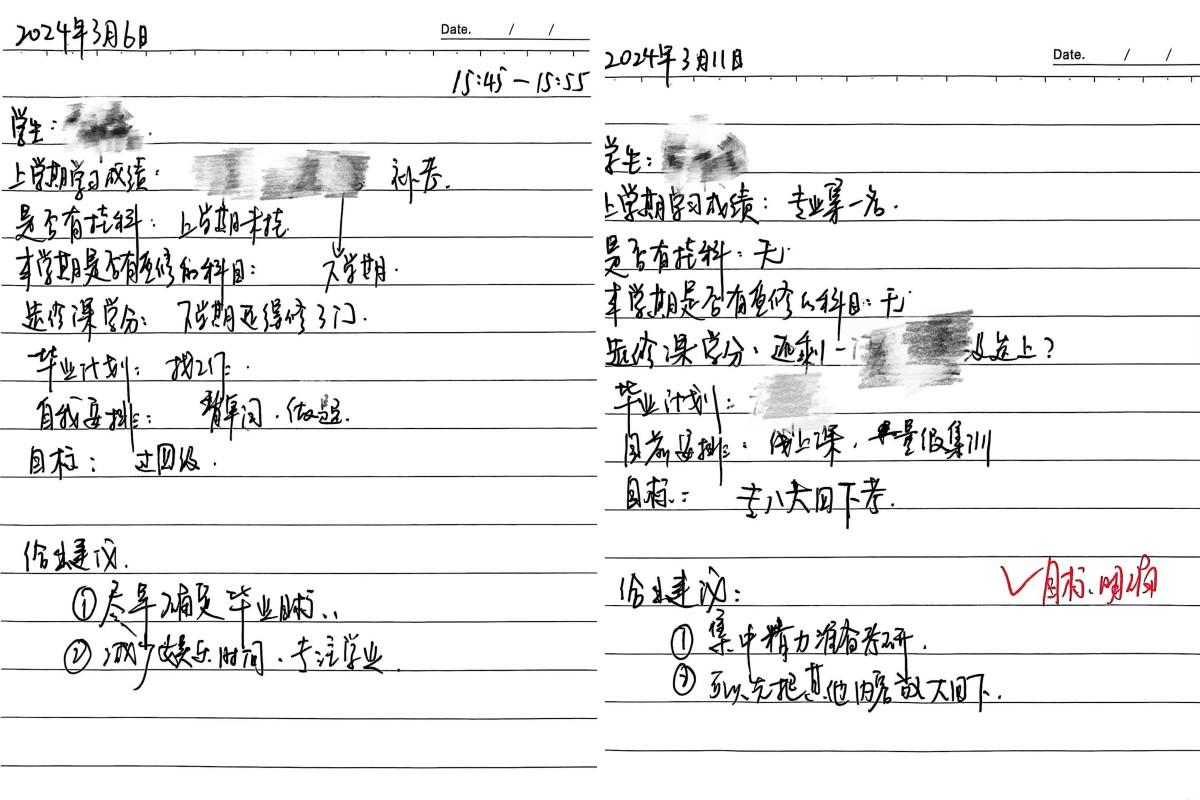 2024年3月6日
Date. / /
15:45 — 15:55
学生:
上学期学习成绩: 补考.
是否有挂科: 上学期未挂.
本学期是否有重修的科目: 下学期.
选修课学分: 下学期还得修3门.
毕业计划: 找工作.
自我安排: 背单词、做题.
目标: 过四级.
给出建议.
① 尽早确定毕业目标.
② 减少娱乐时间、专注学业.
2024年3月11日
Date. / /
学生:
上学期学习成绩: 专业第一名.
是否有挂科: 无.
本学期是否有重修的科目: 无
选修课学分: 还剩一门 没选上?
毕业计划:
目前安排: 线上课, 暑假集训
目标: 专八大四下考.
✓目标明确
给出建议:
① 集中精力准备考研.
② 可以先把其他内容放大四下.